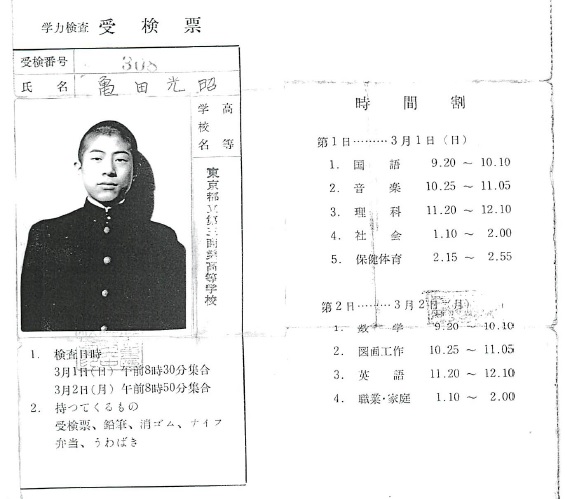 学力検査 受検票
受検番号 308
氏名 亀田光昭
高等学校名
東京都立第三商業高等学校
1. 検査日時
3月1日(日) 午前8時30分集合
3月2日(月) 午前8時50分集合
2. 持つてくるもの
受検票、鉛筆、消ゴム、ナイフ
弁当、うわばき
時間割
第1日………3月1日(日)
1. 国語 9.20 ～ 10.10
2. 音楽 10.25 ～ 11.05
3. 理科 11.20 ～ 12.10
4. 社会 1.10 ～ 2.00
5. 保健体育 2.15 ～ 2.55
第2日………3月2日(月)
1. 数学 9.20 ～ 10.10
2. 図画工作 10.25 ～ 11.05
3. 英語 11.20 ～ 12.10
4. 職業・家庭 1.10 ～ 2.00